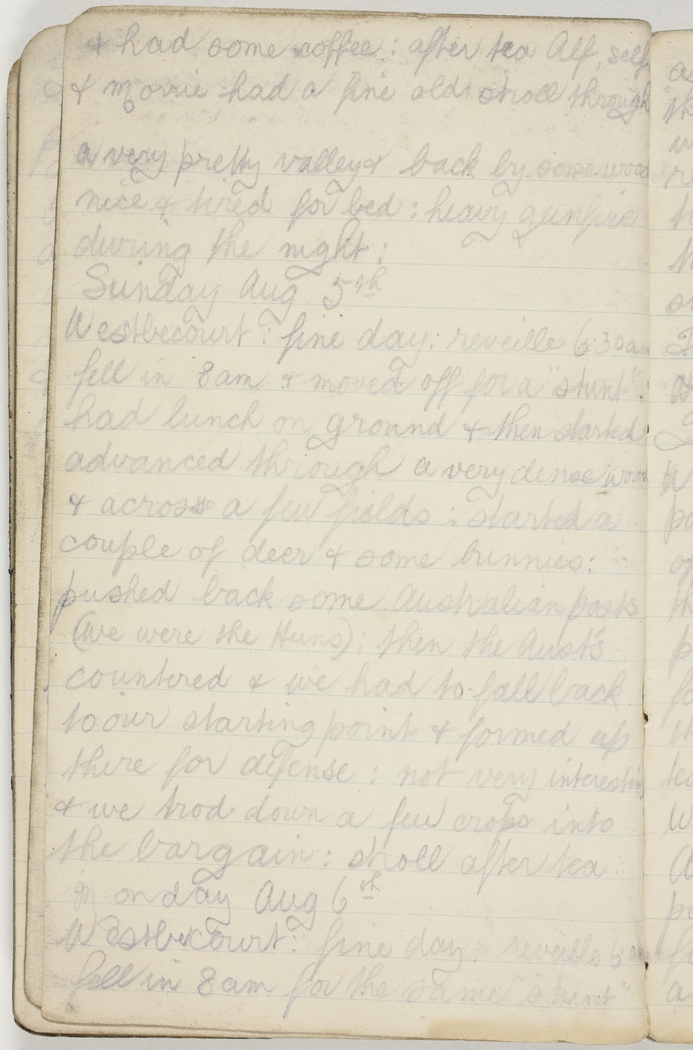 & had some coffee: after tea Alf, self
& Morrie had a fine old stroll through
a very pretty valley & back by some wood
nice & tired for bed: heavy gunfire
during the night:
Sunday Aug 5th
Westbecourt: fine day: reveille 6.30am
fell in 8am & moved off for a "stunt":
had lunch on ground & then started
advanced through a very dense wood
& across a few fields: started a
couple of deer & some bunnies:
pushed back some Australian posts
(we were the Huns): then the Aust's
countered & we had to fall back
to our starting point & formed up
there for defense: not very interesting
& we trod down a few crops into
the bargain: stroll after tea:
Monday Aug 6th
Westbecourt: fine day: reveille 6 am
fell in 8am for the same "stunt"